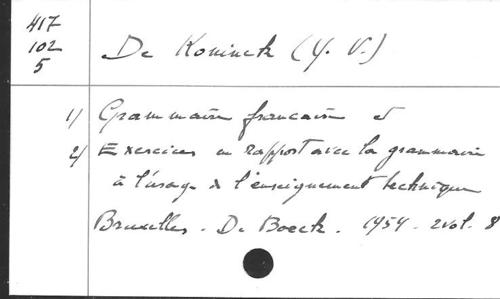 417
102
5
De Koninck (Y. V.)
1) Grammaire française et
2) Exercices en rapport avec la grammaire
à l'usage de l'enseignement technique
Bruxelles. De Boeck. 1954. 2 vol. 8